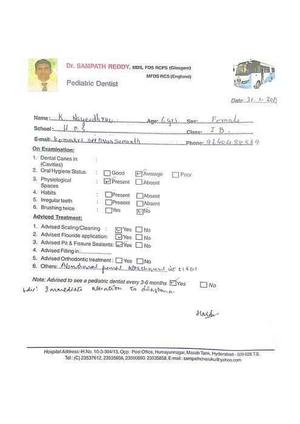 Dr. SAMPATH REDDY, MDS, FDS RCPS (Glasgow)
MFDS RCS (England)
Pediatric Dentist
Date: 21.
Name: K. Age: 6yrs Sex: Female
School: H.P.S Class: I B
E-mail: Phone:
On Examination:
1. Dental Caries in :
(Cavities)
2. Oral Hygiene Status : Good Average Poor
3. Physiological : Present Absent
Spaces
4. Habits : Present Absent
5. Irregular teeth : Present Absent
6. Brushing twice : Yes No
Advised Treatment:
1. Advised Scaling/Cleaning : Yes No
2. Advised Flouride application: Yes No
3. Advised Pit & Fissure Sealents: Yes No
4. Advised Filling in
5. Advised Orthodontic treatment : Yes No
6. Others: Abnormal frenal attachment
Note: Advised to see a pediatric dentist every 3-6 months Yes No
Adv: Immediate attention to diastema
Hospital Address: H.No. 10-3-304/13, Opp. Post Office, Humayunnagar, Masab Tank, Hyderabad - 500 028 T.S.
Tel: (C) 23537612, 23535856, 23550693, 23535858, E-mail: